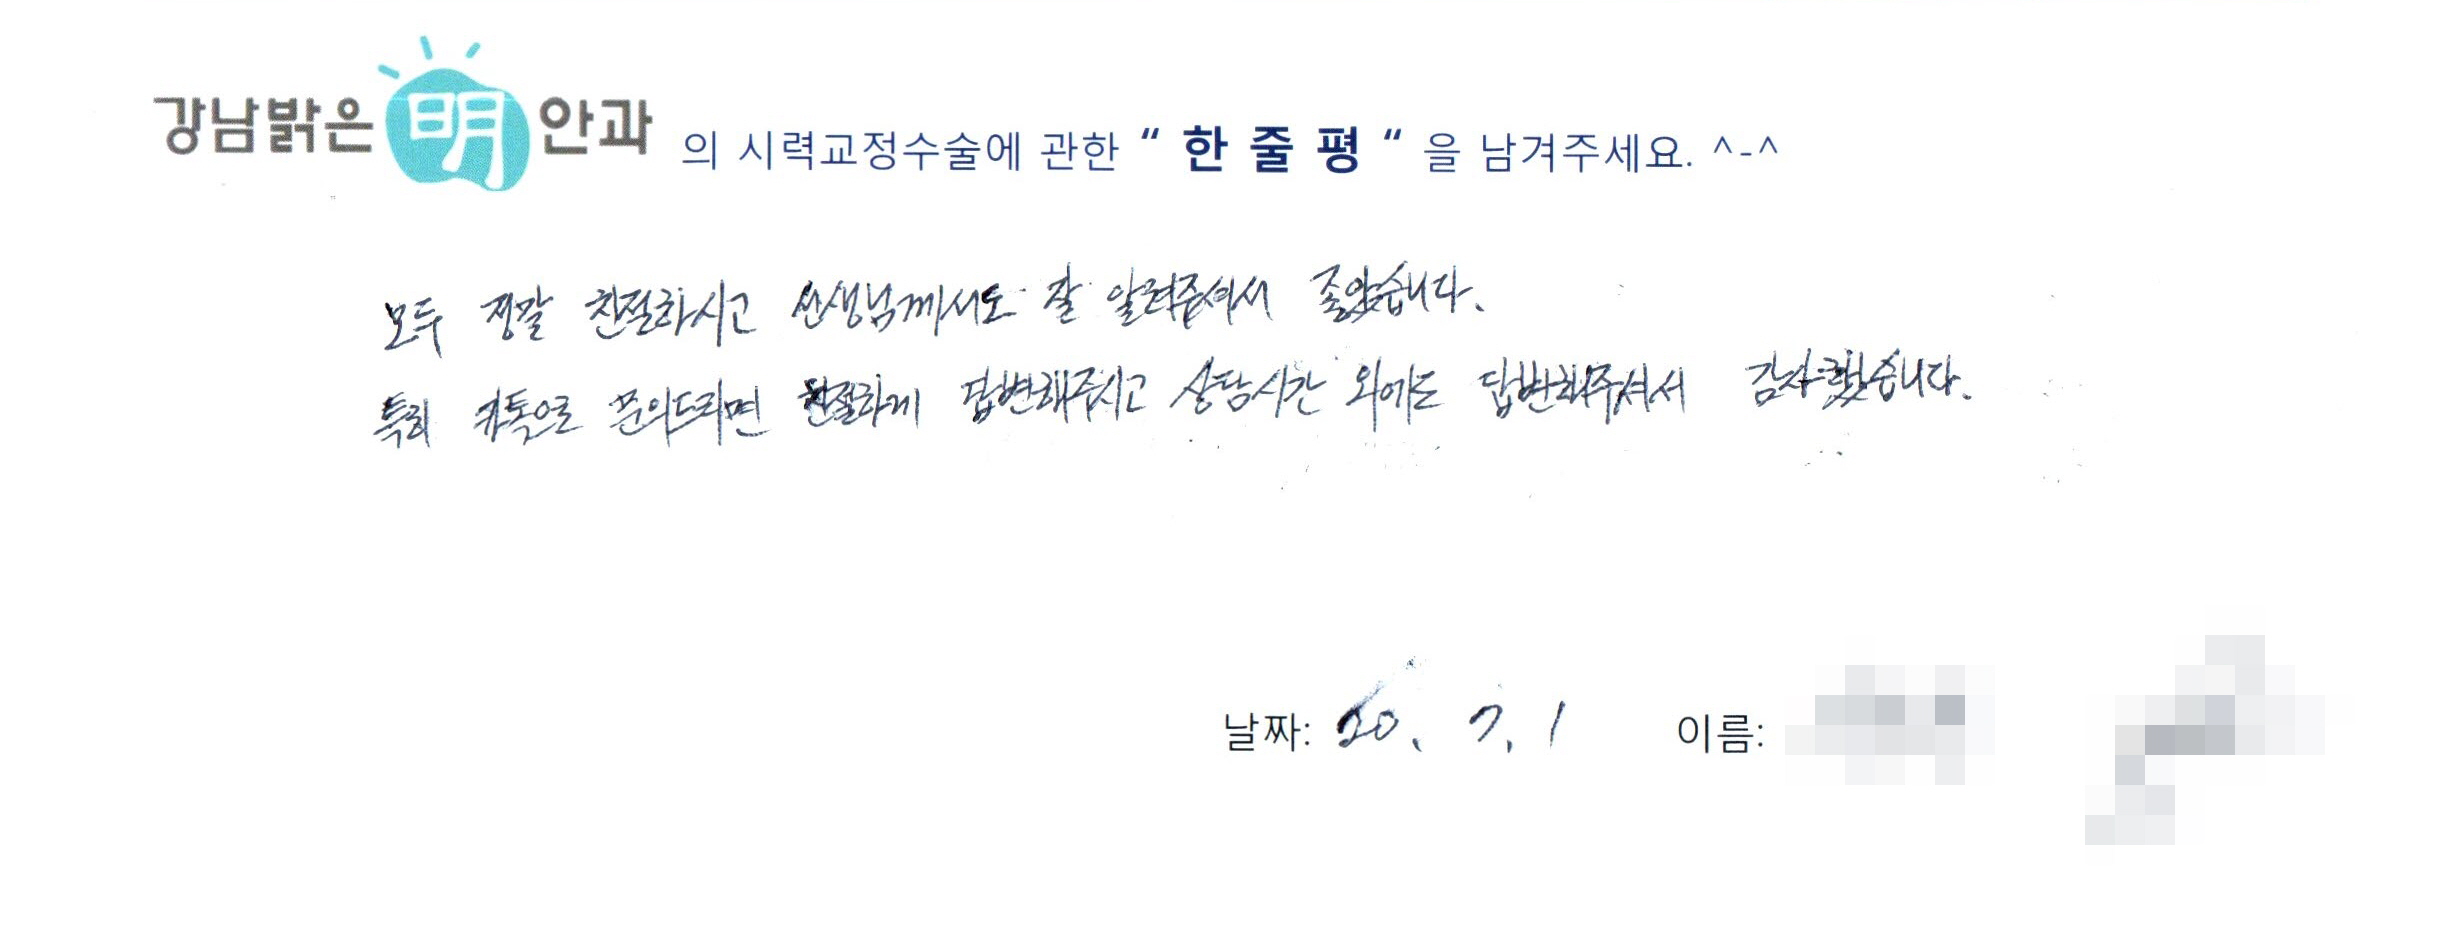 강남밝은 明 안과 의 시력교정수술에 관한 “ 한 줄 평 “ 을 남겨주세요. ^-^
모두 정말 친절하시고 선생님께서도 잘 알려주셔서 좋았습니다.
특히 카톡으로 문의드리면 친절하게 답변해주시고 상담시간 외에도 답변해주셔서 감사했습니다.
날짜: 20. 7. 1 이름: